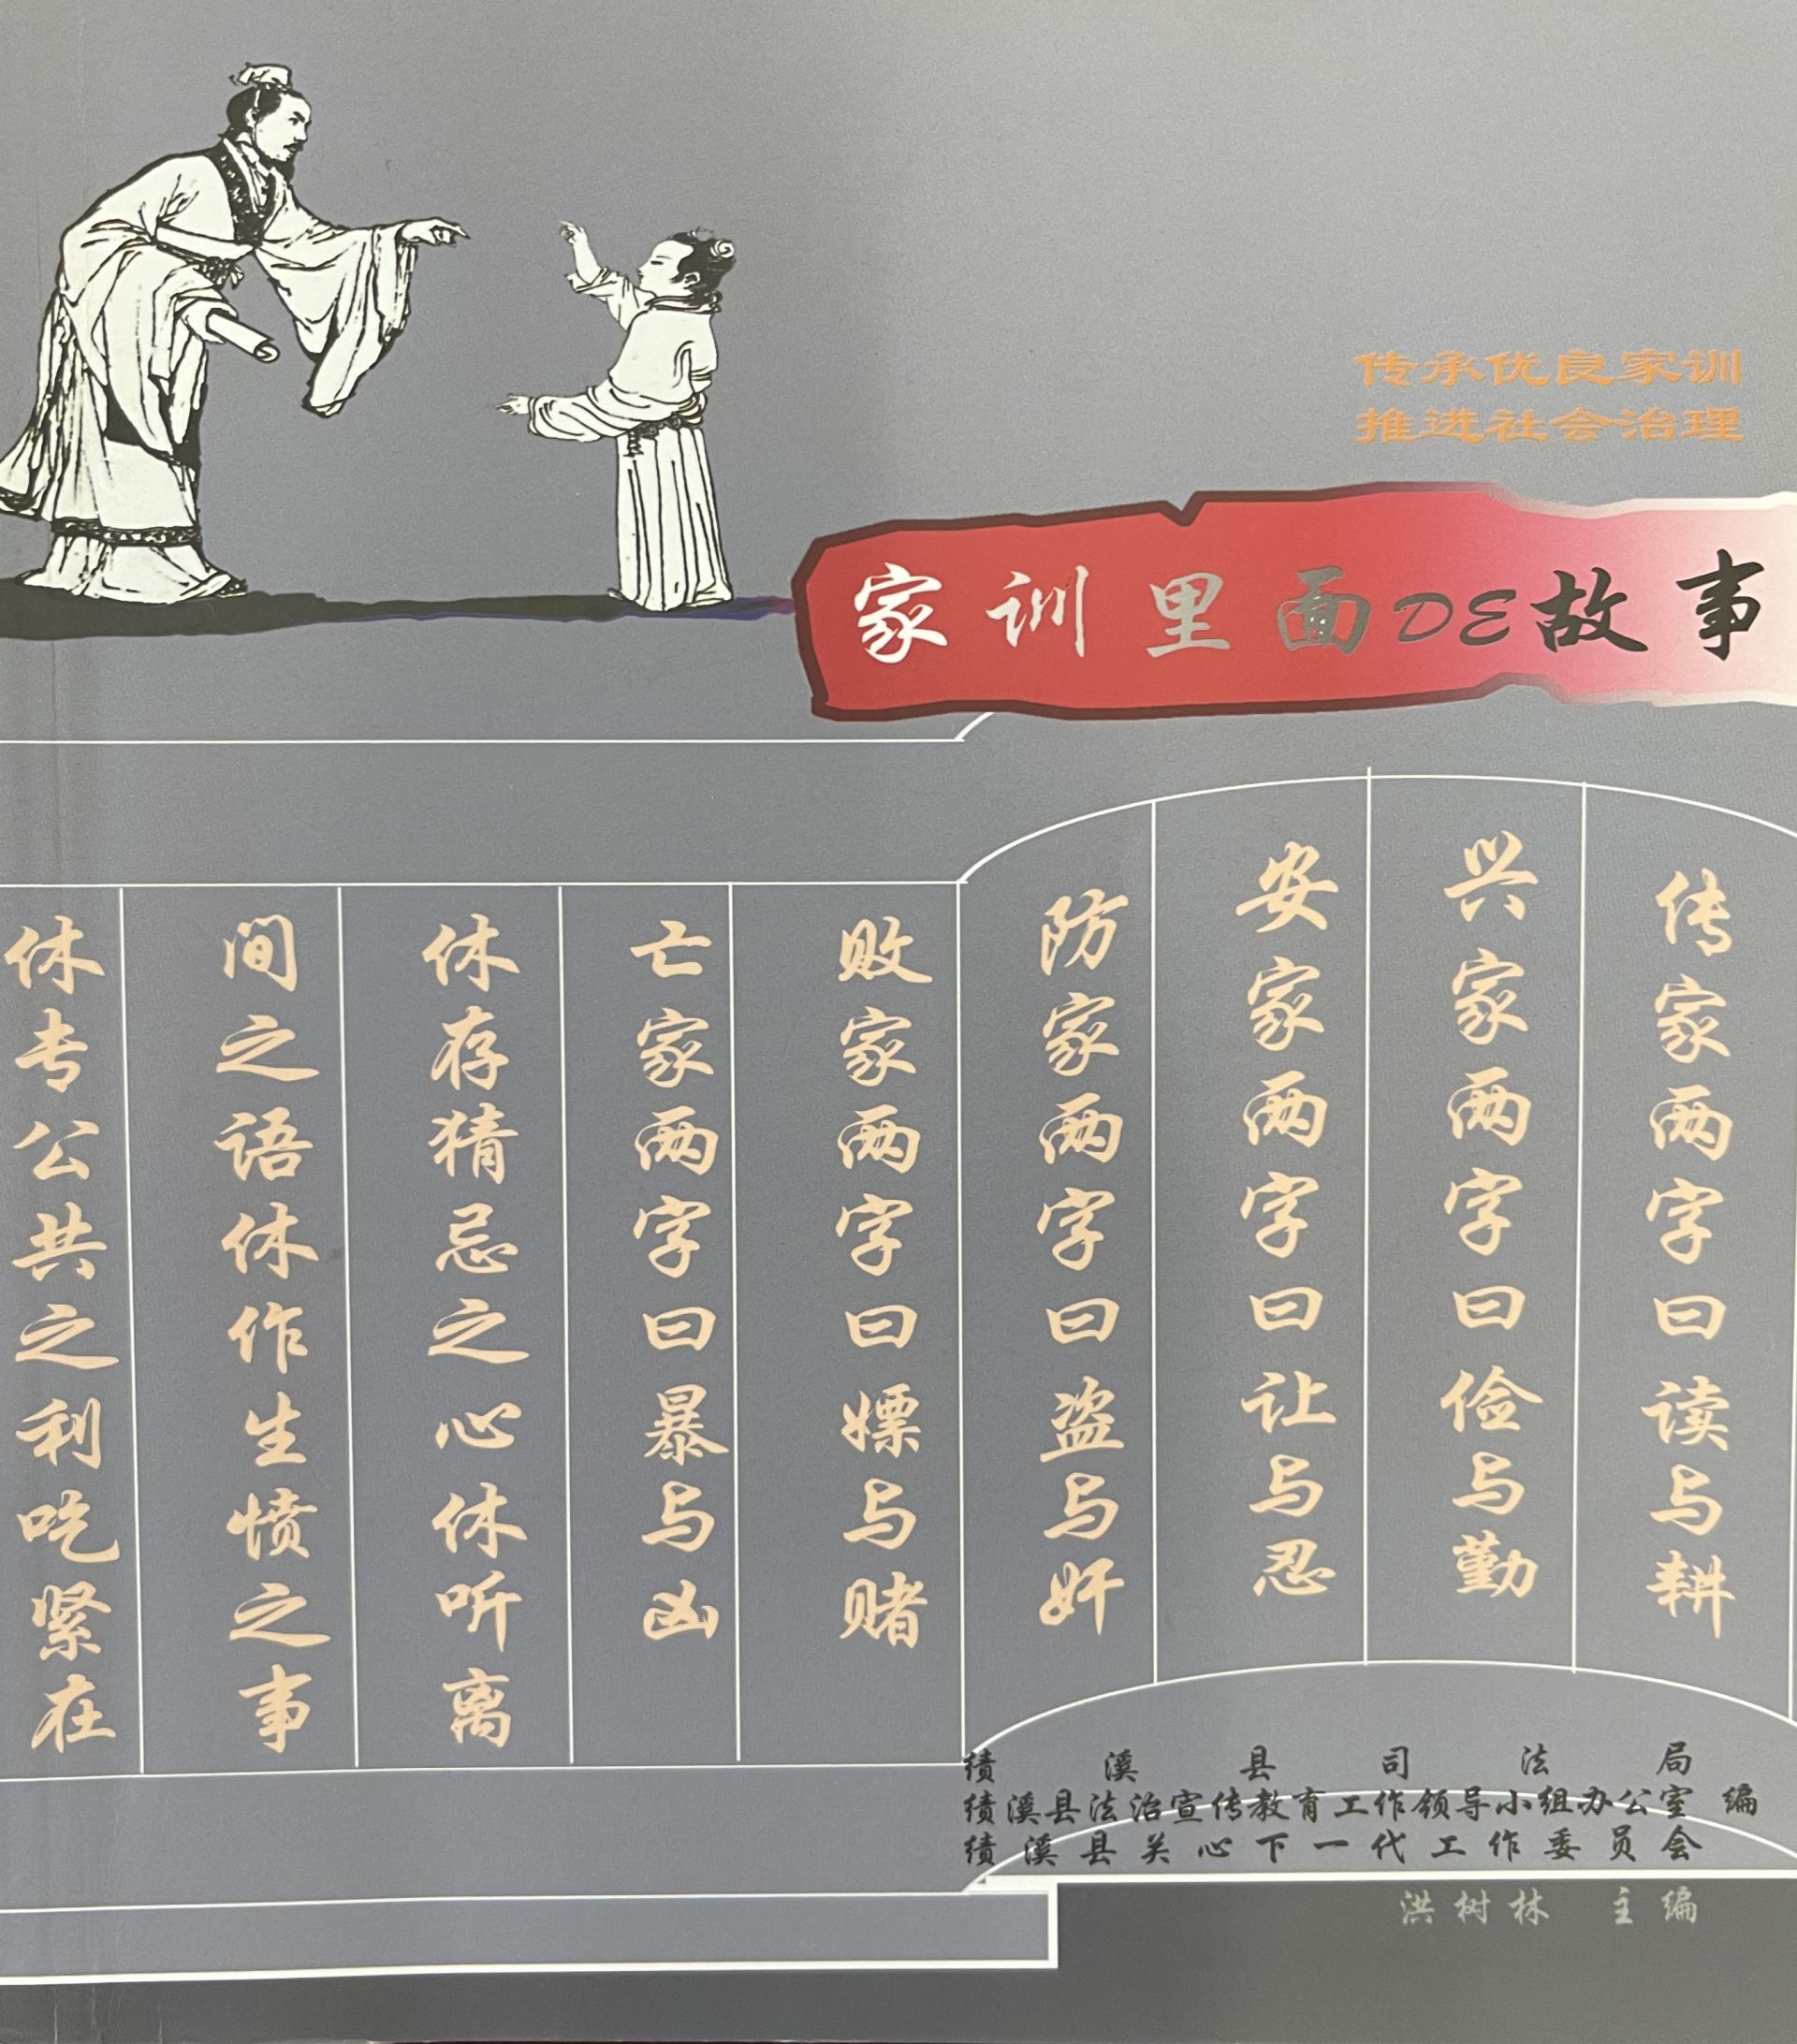 传承优良家训
推进社会治理
家训里面DE故事
传家两字曰读与耕
兴家两字曰俭与勤
安家两字曰让与忍
防家两字曰盗与奸
败家两字曰嫖与赌
亡家两字曰暴与凶
休存猜忌之心休听离
间之语休作生愤之事
休专公共之利吃紧在
绩溪县司法局
绩溪县法治宣传教育工作领导小组办公室 编
绩溪县关心下一代工作委员会
洪树林 主编